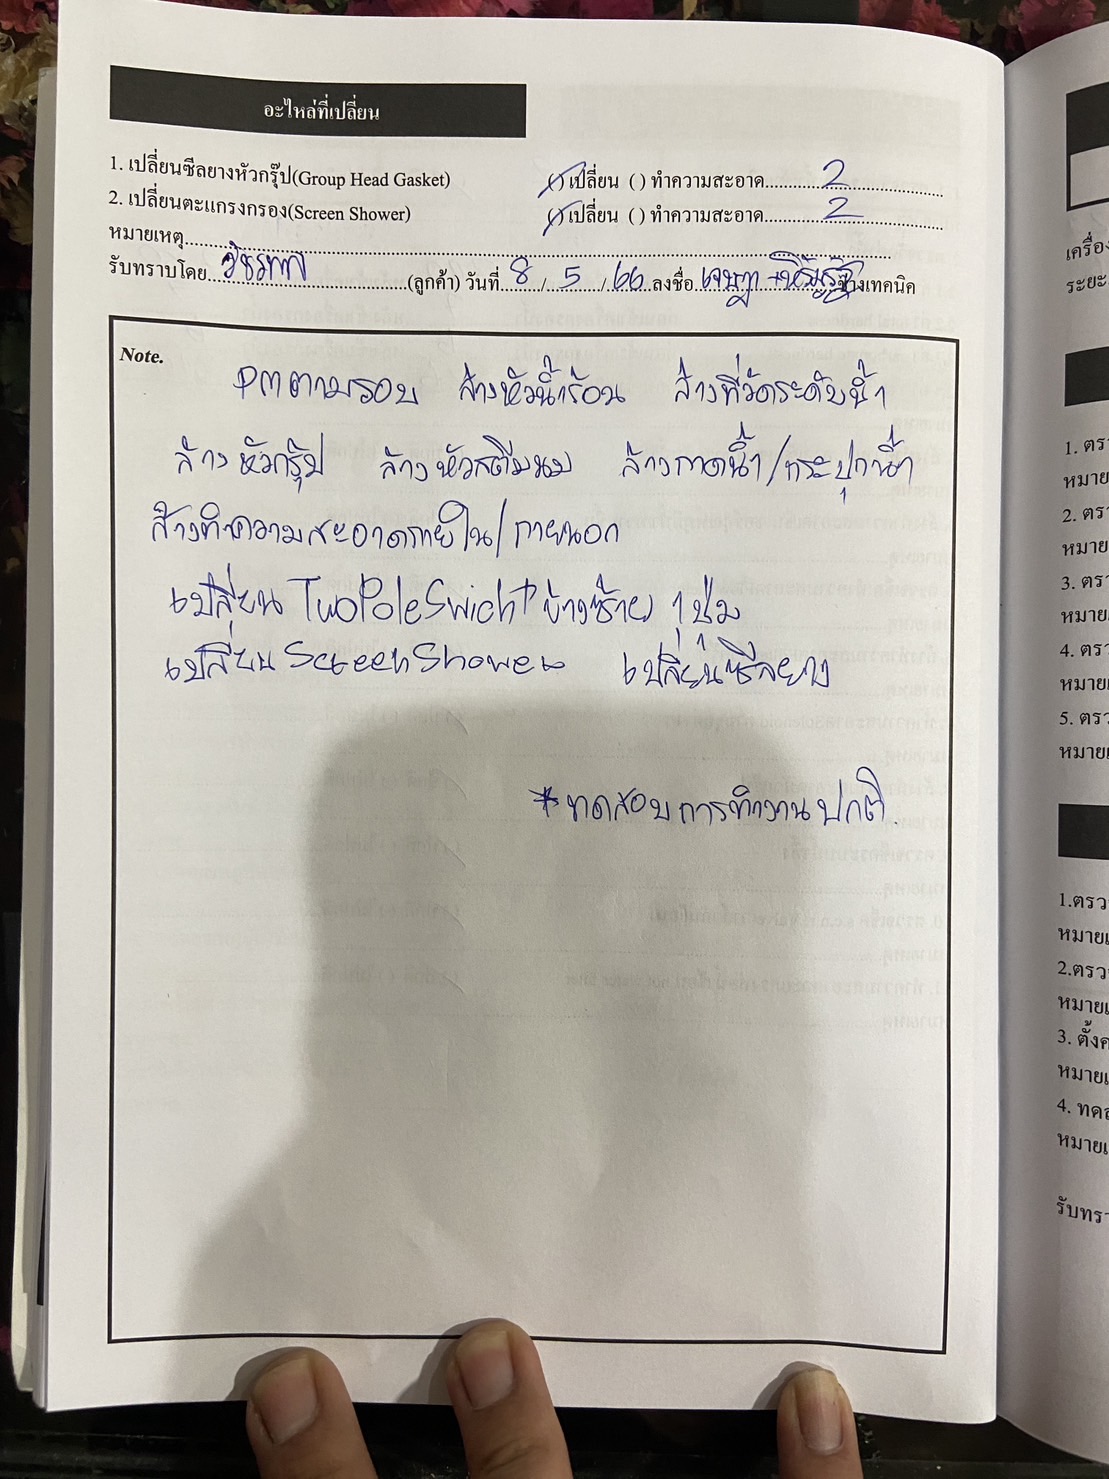 อะไหล่ที่เปลี่ยน
1. เปลี่ยนซีลยางหัวกรุ๊ป(Group Head Gasket) (/) เปลี่ยน ( ) ทำความสะอาด 2
2. เปลี่ยนตะแกรงกรอง(Screen Shower) (/) เปลี่ยน ( ) ทำความสะอาด 2
หมายเหตุ
รับทราบโดย (ลูกค้า) วันที่ 8 / 5 / 66 ลงชื่อ ช่างเทคนิค
Note.
PM ตามรอบ ล้างหัวน้ำร้อน ล้างที่วัดระดับน้ำ
ล้างหัวกรุ๊ป ล้างหัวสตีมนม ล้างถาดน้ำ/กระปุกน้ำ
ล้างทำความสะอาดภายใน/ภายนอก
เปลี่ยน TwoPoleSwicht ข้างซ้าย 1 ปุ่ม
เปลี่ยน ScreenShower เปลี่ยนซีลยาง
*ทดสอบการทำงานปกติ
เครื่อง
ระยะ
1. ตรว
หมาย
2. ตรว
หมาย
3. ตร
หมาย
4. ตรว
หมาย
5. ตรว
หมาย
1.ตรว
หมาย
2.ตรว
หมาย
3. ตั้งค
หมาย
4. ทดส
หมาย
รับทร